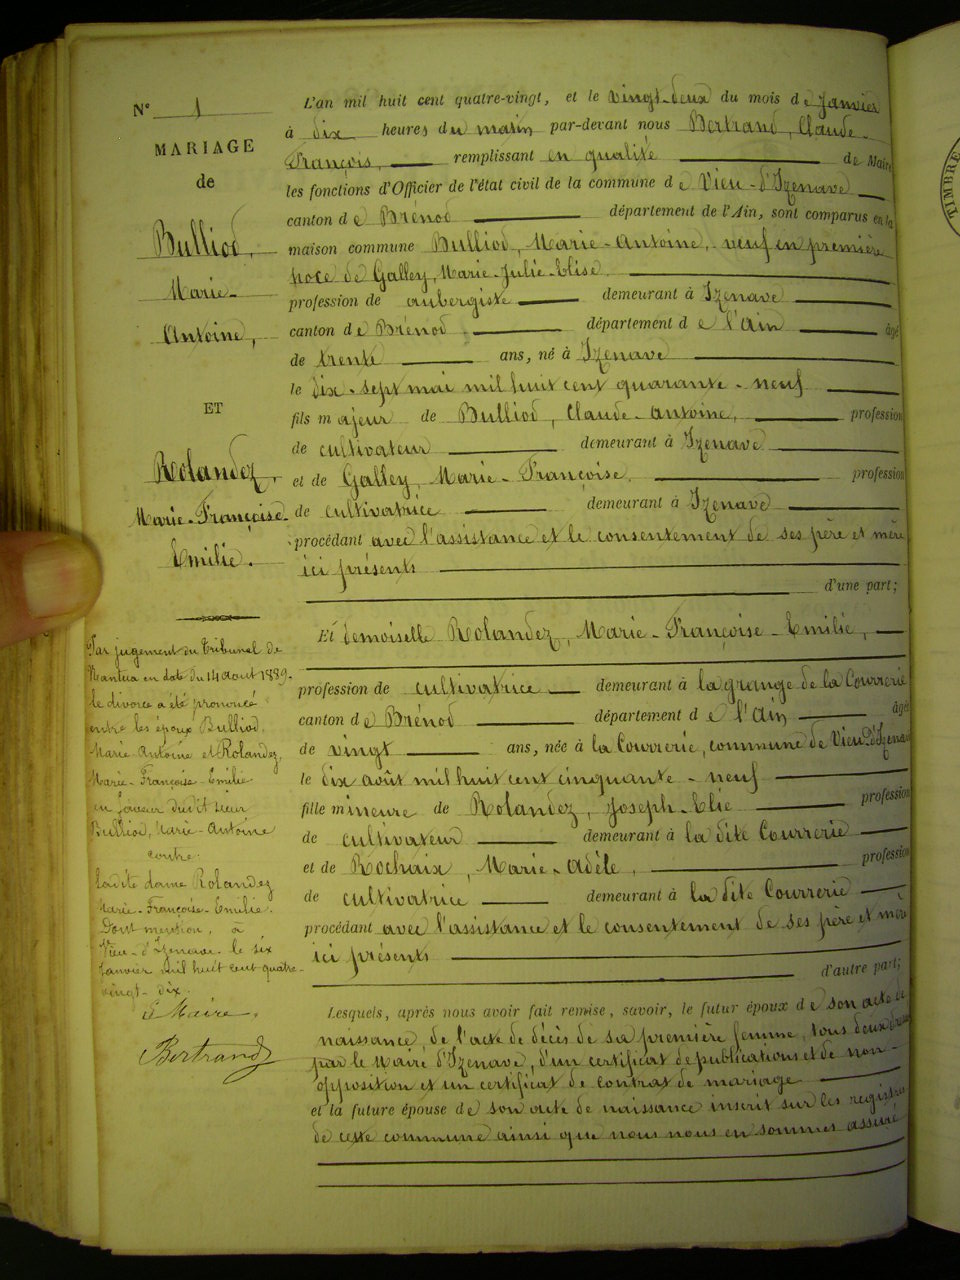 N° 1
MARIAGE
de
Bulliod,
Marie-
Antoine,
ET
Rolandez,
Marie-Françoise-
Emilie.
Par jugement du Tribunal de
Nantua en date du 14 août 1889.
le divorce a été prononcé
entre les époux Bulliod,
Marie-Antoine et Rolandez,
Marie-Françoise-Emilie
en faveur dudit sieur
Bulliod, Marie-Antoine
contre
Ladite dame Rolandez
Marie-Françoise-Emilie.
Dont mention, à
Vieu-d'Izenave le six
Janvier mil huit cent quatre-
vingt-dix.
Le Maire,
Bertrand
L'an mil huit cent quatre-vingt, et le vingt-deux du mois de Janvier
à dix heures du matin par-devant nous Bertrand, Claude-
François, remplissant en qualité de Maire
les fonctions d'Officier de l'état civil de la commune de Vieu-d'Izenave
canton de Brénod département de l'Ain, sont comparus en la
maison commune Bulliod, Marie-Antoine, veuf en première
noce de Galley, Marie-Julie-Elise.
profession de aubergiste demeurant à Izenave
canton de Brénod département de l'Ain âgé
de trente ans, né à Izenave
le dix-sept mai mil huit cent quarante-neuf
fils majeur de Bulliod, Claude-Antoine, profession
de cultivateur demeurant à Izenave
et de Galley, Marie-Françoise profession
de cultivatrice demeurant à Izenave
procédant avec l'assistance et le consentement de ses père et mère
ici présents
d'une part;
Et demoiselle Rolandez, Marie-Françoise-Emilie,
profession de cultivatrice demeurant à la grange de la Courrerie
canton de Brénod département de l'Ain âgée
de vingt ans, née à la Courrerie, commune de Vieu-d'Izenave
le dix août mil huit cent cinquante-neuf
fille mineure de Rolandez, Joseph-Elie profession
de cultivateur demeurant à la dite Courrerie
et de Rochaix, Marie-Adèle, profession
de cultivatrice demeurant à la dite Courrerie
procédant avec l'assistance et le consentement de ses père et mère
ici présents
d'autre part;
Lesquels, après nous avoir fait remise, savoir, le futur époux de son acte de
naissance, de l'acte de décès de sa première femme, tous deux
par le Maire d'Izenave, d'un certificat de publications et de non-
opposition et un certificat de contrat de mariage
et la future épouse de son acte de naissance inscrit sur les registres
de cette commune ainsi que nous nous en sommes assuré
TIMBRE